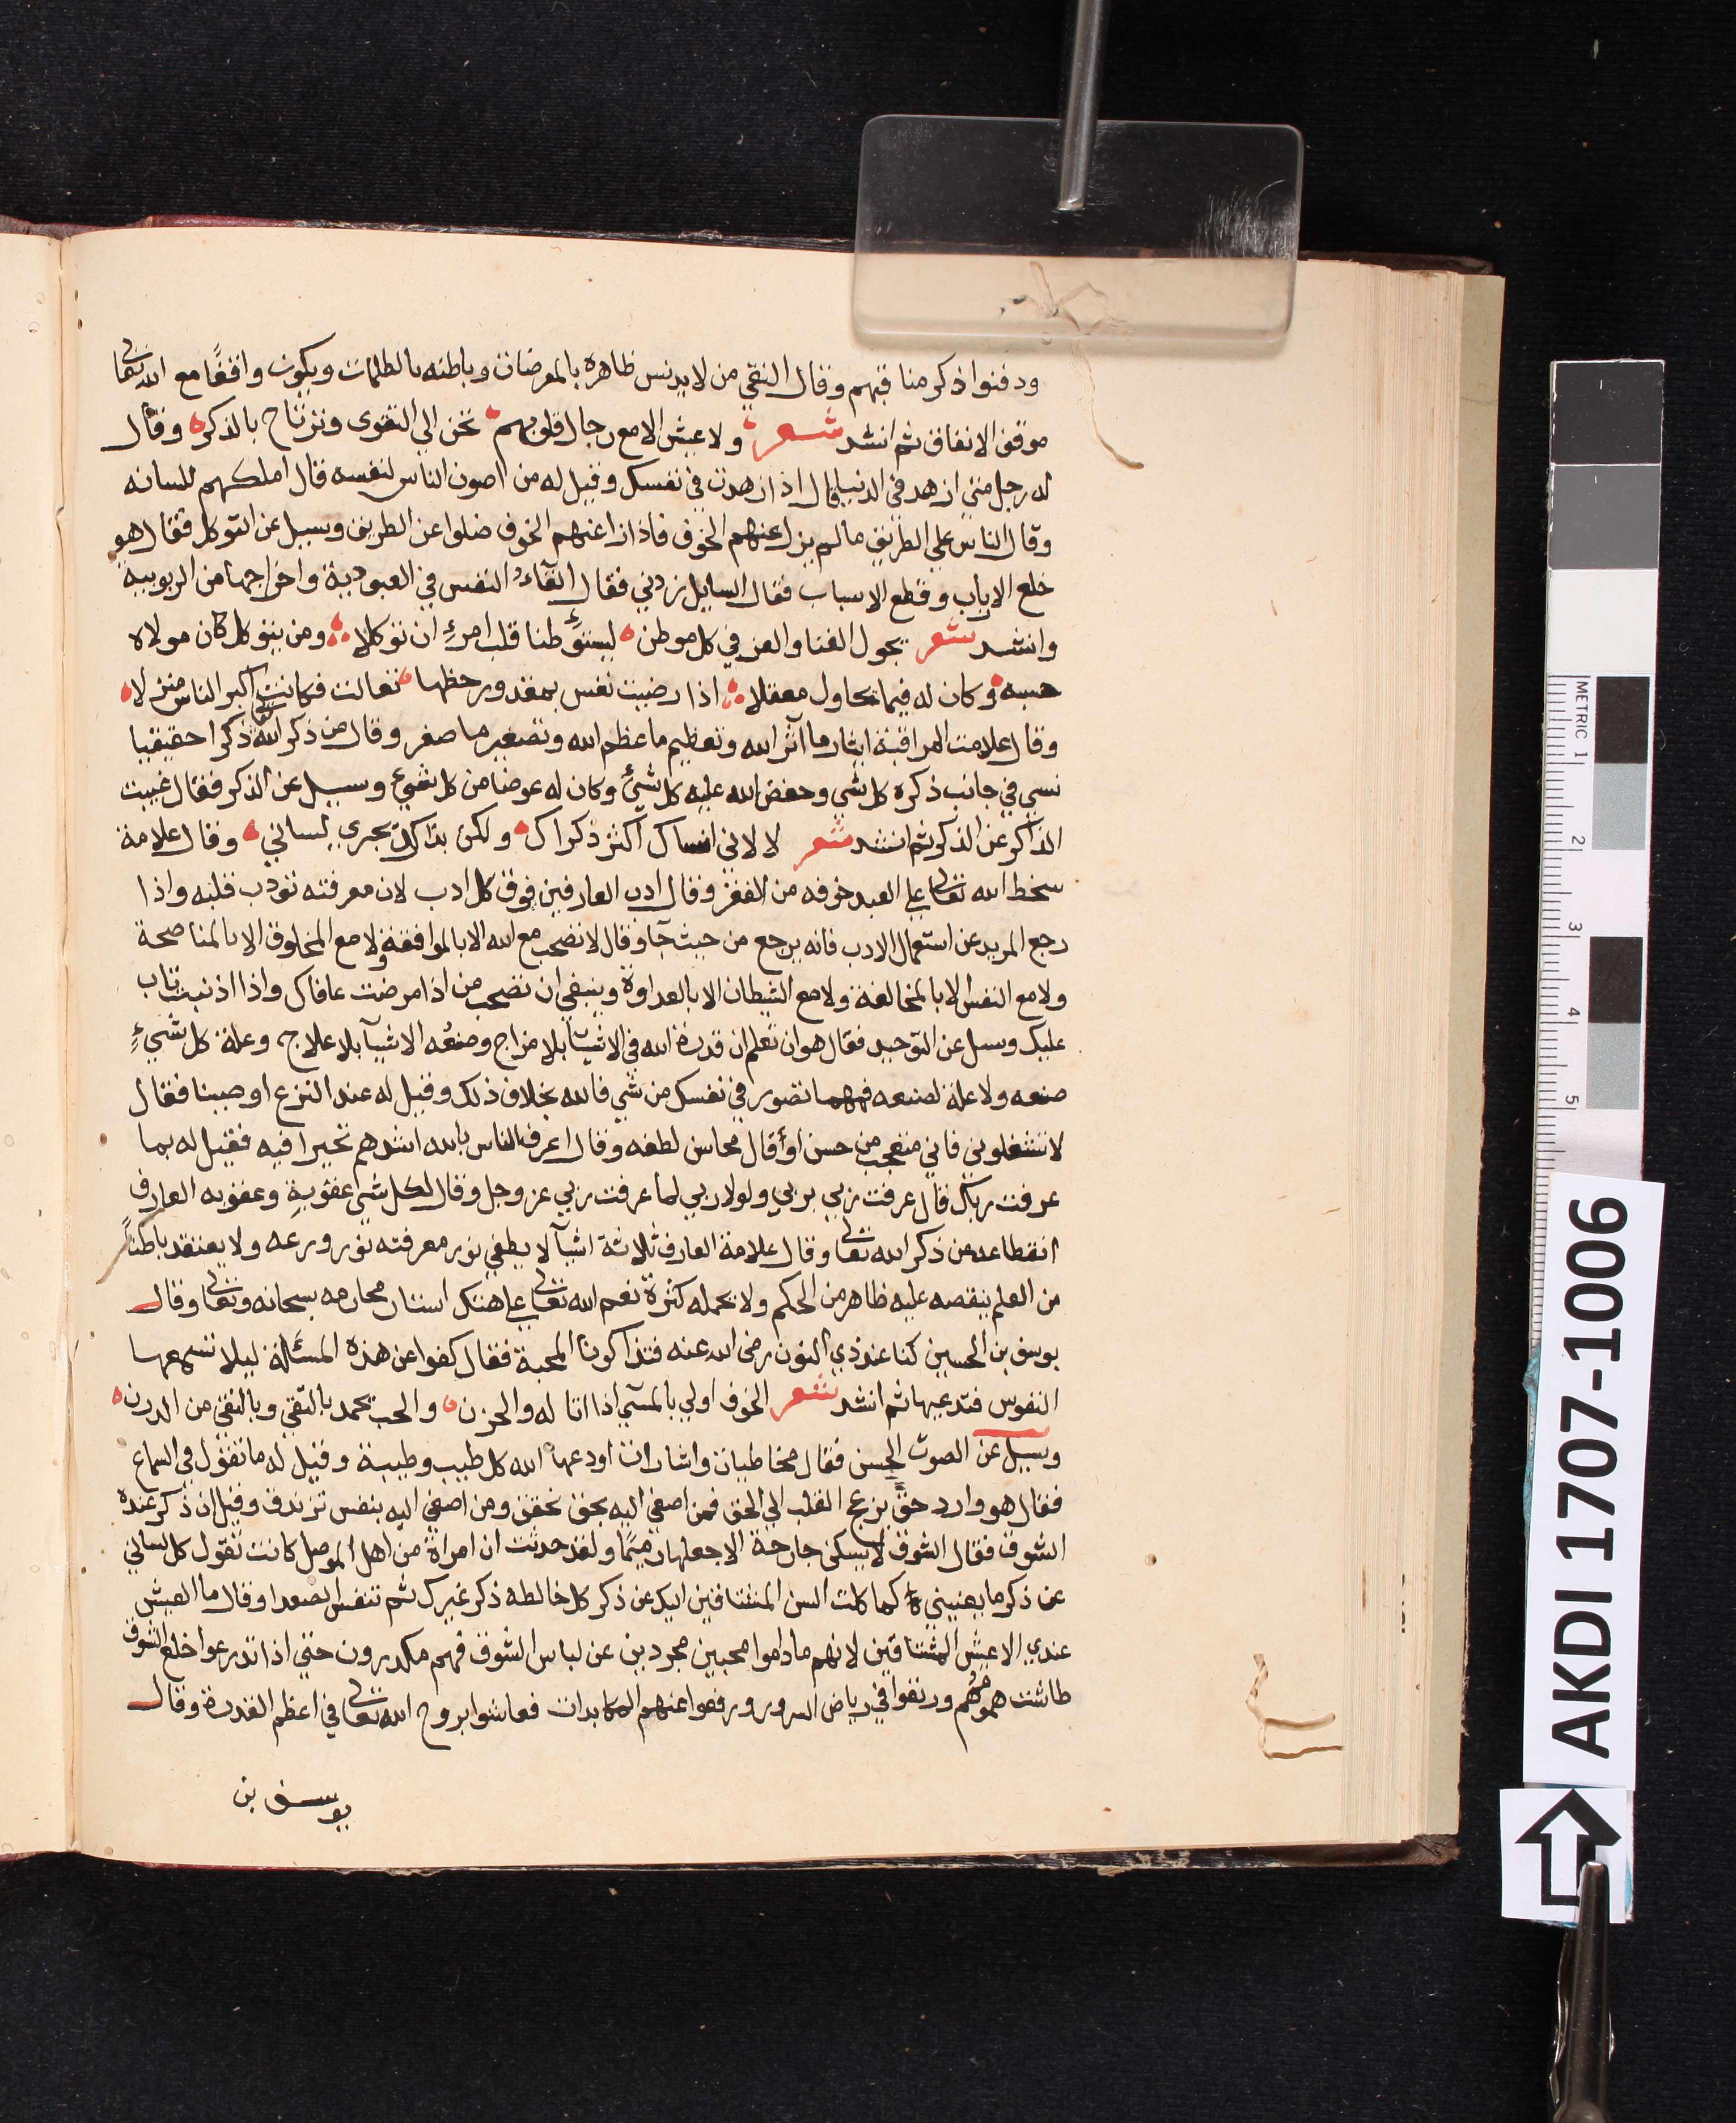 ودفنوا ذكر مناقبهم وقال التقي من لا يدنس ظاهره بالمعرضات وباطنه بالظلمات ويكون واقفًا مع الله تعالى
موقف الاتفاق ثم انشد شعر ولا عيش الا مع رجال قلوبهم تحن الي التقوى وترتاح بالذكر وقال
له رجل متي ازهد في الدنيا قال اذا زهدت في نفسك وقيل له من اصون الناس لنفسه قال املكهم للسانه
وقال الناس علي الطريق ما لم يزل عنهم الخوف فاذا زال عنهم الخوف ضلوا عن الطريق وسيل عن التوكل فقال هو
خلع الارباب وقطع الاسباب فقال السايل زدني فقال القاء النفس في العبودية واخراجها من الربوبية
وانشد شعر يجول الغنا والعز في كل موطن ليستوطنا قلب امرءٍ ان توكلا ومن يتوكل كان مولاه
حسبه وكان له فيما يحاول معقلا اذا رضيت نفس بمقدور حظها تعالت فكانت اكبر الناس منزلا
وقال علامت المراقبة ايثار ما آثر الله وتعظيم ما عظم الله وتصغير ما صغر وقال من ذكر الله تعالى ذكرا حقيقيا
نسي في جانب ذكره كل شي وحفض الله عليه كل شئ وكان له عوضا من كل شيء وسيل عن الذكر فقال غيبت
الذاكر عن الذكر ثم انشد شعر لا لاني انساك اكثر ذكراك ولكن بذاك يجري لساني وقال علامة
سخط الله تعالى علي العبد خوفه من الفقر وقال ادب العارفين فوق كل ادب لان معرفته تودب قلبه واذا
رجع المريد عن استعمال الادب فانه يرجع من حيث جآ وقال لا تصحب مع الله الا بالموافقة ولا مع المخلوق الا بالمناصحة
ولا مع النفس الا بالمخالفة ولا مع الشيطان الا بالعداوة وينبغي ان تصحب من اذا مرضت عافاك واذا اذنبت تاب
عليك وسيل عن التوحيد فقال هو ان تعلم ان قدرة الله في الاشيآ بلا مزاج وصنعُه الاشيآ بلا علاج وعلة كل شيءٍ
صنعه ولا علة لصنعه فمهما تصور في نفسك من شي فالله بخلاف ذلك وقيل له عند النزع اوصينا فقال
لا تشغلوني فاني متعجب من حسن او قال محاسن لطفه وقال اعرف الناس بالله اشدهم تحيرا فيه فقيل له بما
عرفت ربك قال عرفت ربي بربي ولولا ربي لما عرفت ربي عز وجل وقال لكل شي عقوبةٍ وعقوبه العارف
انقطاعه عن ذكر الله تعالى وقال علامة العارف ثلاثة اشيآ لا يطفي نور معرفته نور ورعه ولا يعتقد باطنًا
من العلم ينقصه عليه ظاهر من الحكم ولا يحمله كثرة نعم الله تعالى علي هتك استار محارمه سبحانه وتعالى وقال
يوسف بن الحسين كنا عند ذي النون رضي الله عنه فتذاكرنا المحبة فقال كفوا عن هذه المسئالة ليلا تسمعها
النفوس فتدعيها ثم انشد شعر الخوف اولي بالمسآي اذا اتا له والحزن والحب يحمد بالتقي وبالنقي من الدرن
وسيل عن الصوت الحسن فقال مخاطبات واشارات اودعها الله كل طيب وطيبة وقيل له ما تقول في السماع
فقال هو وارد حق يزعج القلب الي الحق فمن اصغي اليه بحق تحقق ومن اصغي اليه بنفس تزندق وقيل ان ذكر عنده
الشوق فقال الشوق لا يسكن جارحة الا جعلها رميمًا ولقد حدثت ان امراة من اهل الموصل كانت تقول كل لساني
عن ذكر ما يعنيني كما كلت السن المشتاقين اليك عن ذكر كل خالطه ذكر غيرك ثم تتنفس الصعدا وقال ما العيش
عندي الا عيش المشتاقين لانهم ما داموا محبين مجردين عن لباس الشوق فهم مكدرون حتي اذا تدرعوا خلع الشوق
طاشت همومُهم ورتعوا في رياض السرور ورفعوا عنهم المكابدات فعاشوا بروح الله تعالى في اعظم القدرة وقال
يوسف بن
AKDI 1707-1006
METRIC 1
2
3
4
5